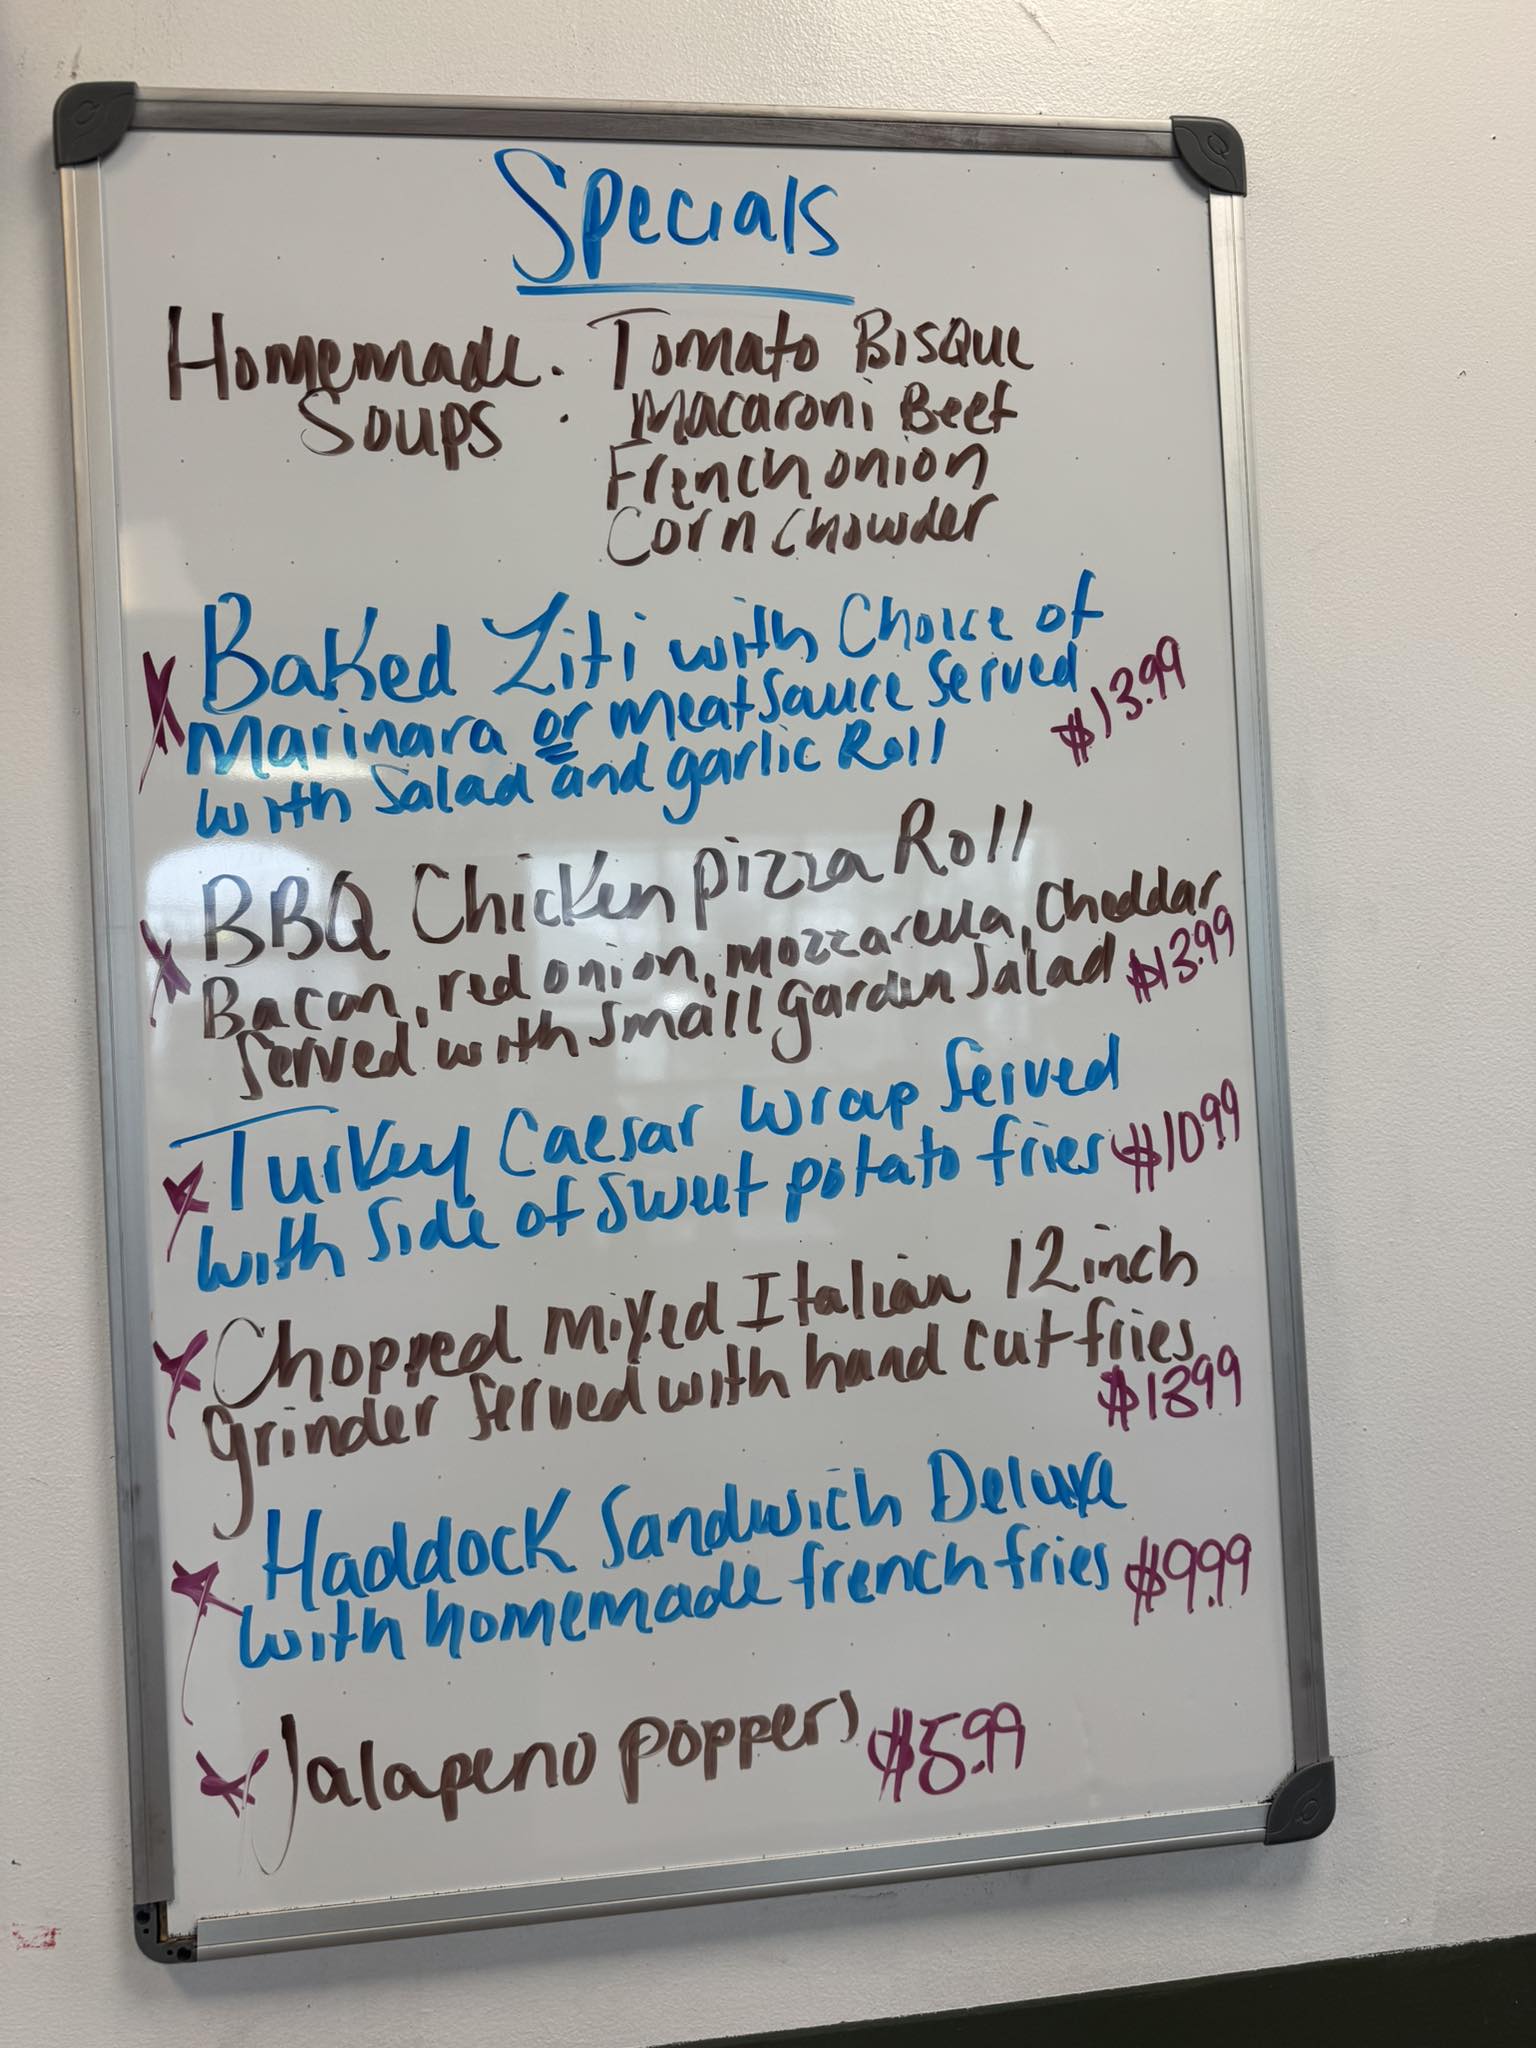 Specials
Homemade · Tomato Bisque
Soups · Macaroni Beef
French onion
Corn Chowder
Baked Ziti with Choice of
Marinara or meat sauce Served
with Salad and garlic Roll $13.99
BBQ Chicken pizza Roll
Bacon, red onion, mozzarella, Cheddar
Served with small garden Salad $13.99
Turkey Caesar wrap Served
with side of sweet potato fries $10.99
Chopped mixed Italian 12 inch
grinder served with hand cut fries
$13.99
Haddock Sandwich Deluxe
with homemade french fries $9.99
Jalapeno poppers $5.99